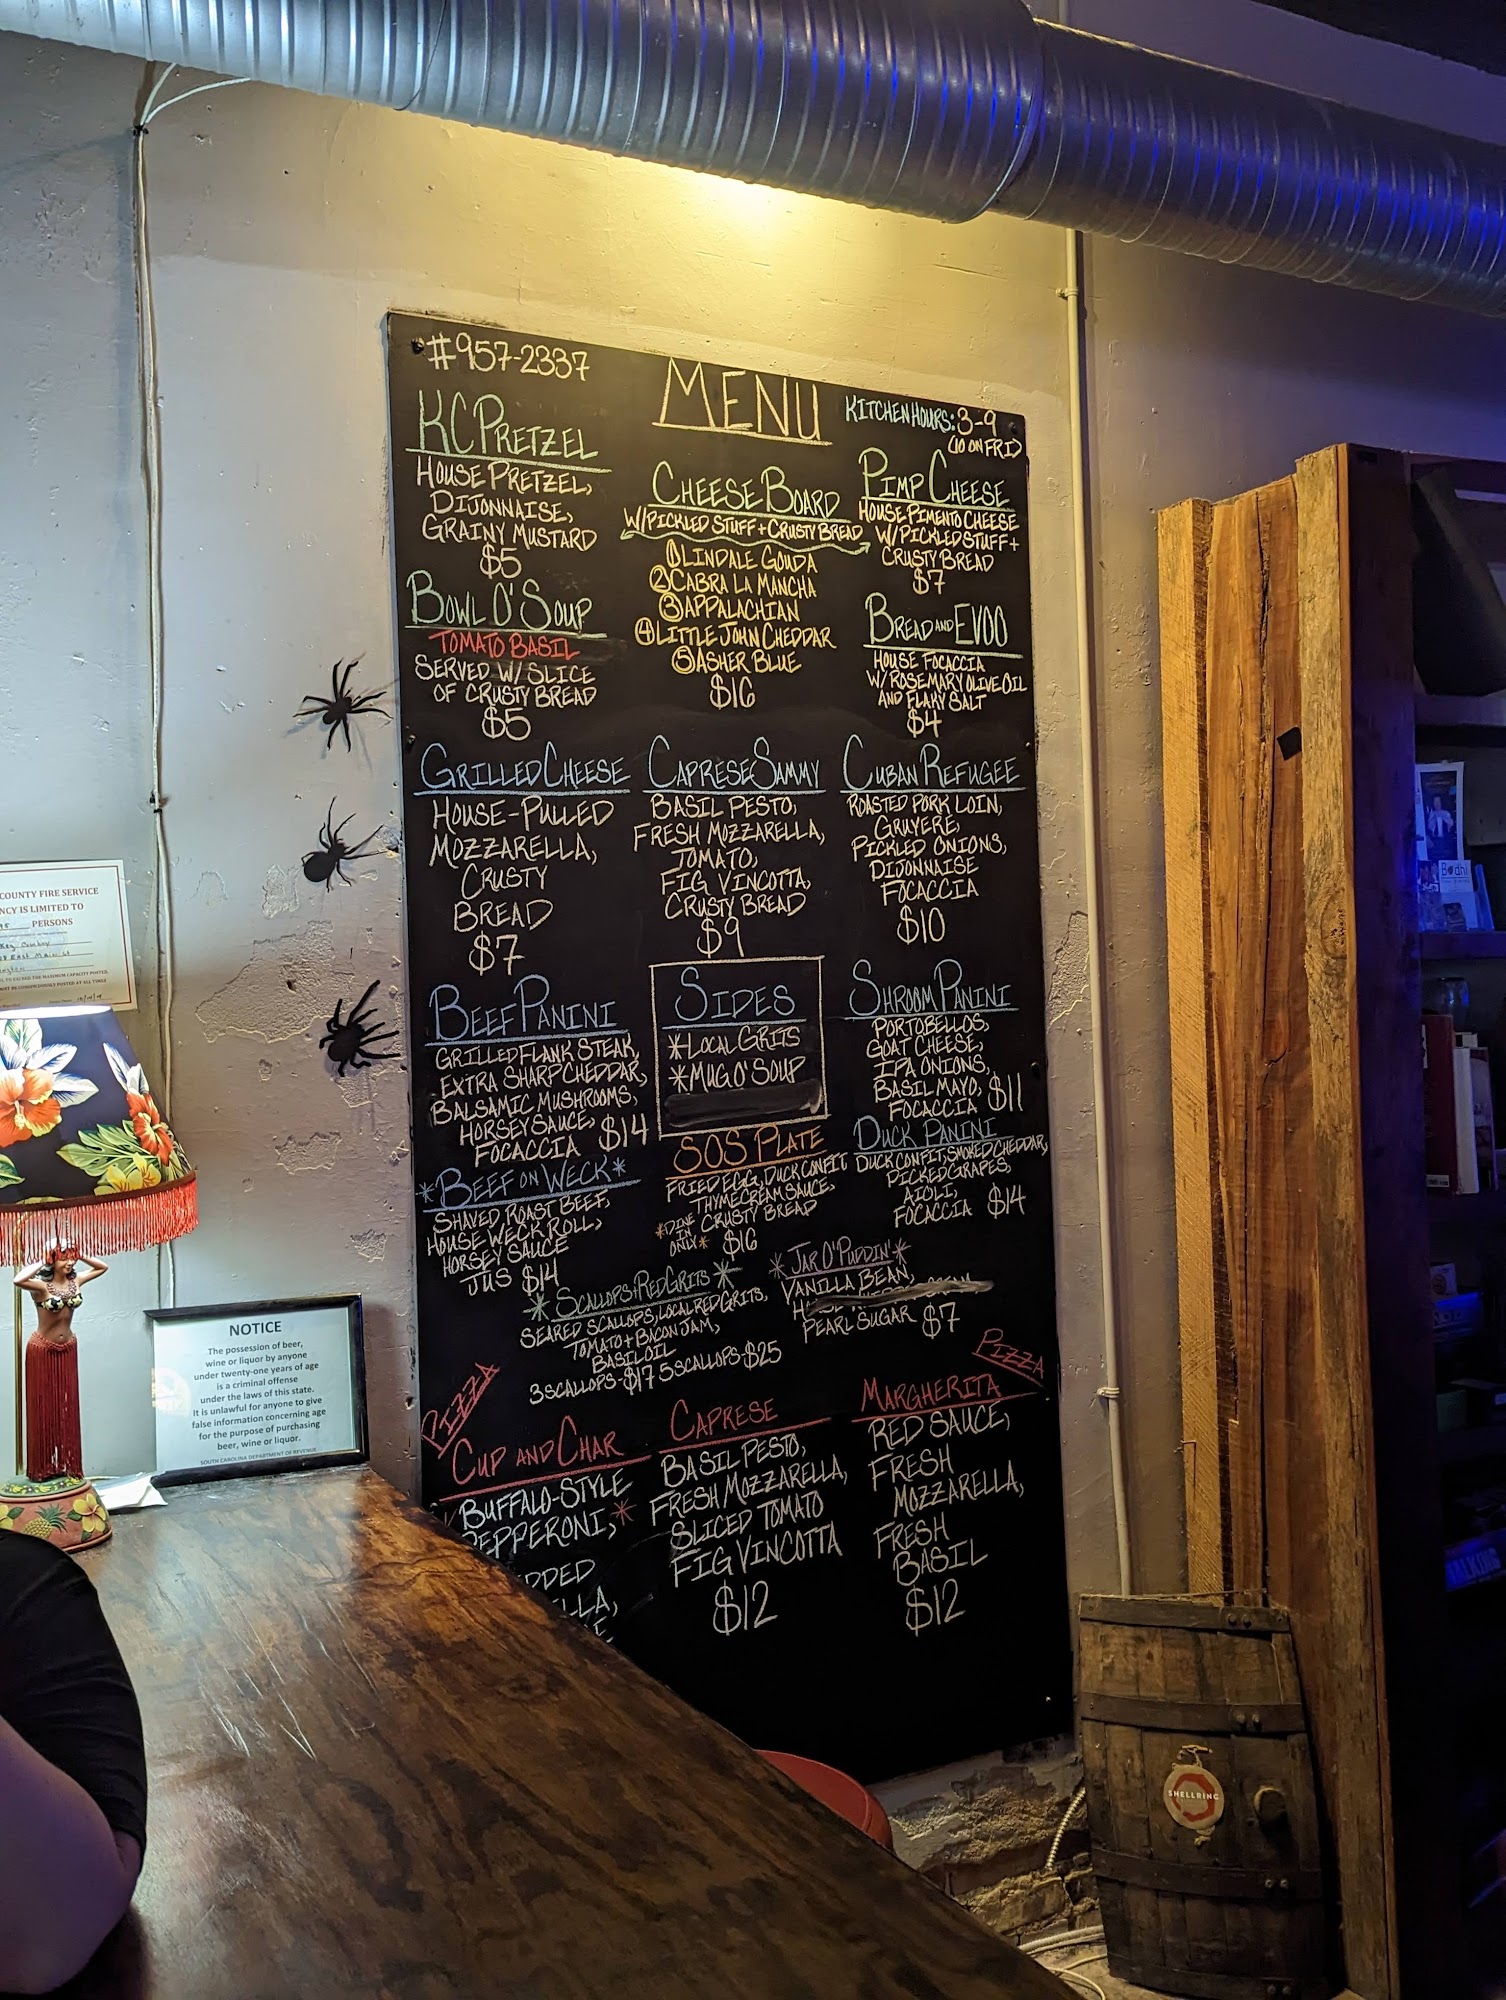 #957-2337
MENU
KITCHEN HOURS: 3-9
(10 ON FRI)
KC PRETZEL
HOUSE PRETZEL,
DIJONNAISE,
GRAINY MUSTARD
$5
BOWL O' SOUP
TOMATO BASIL
SERVED W/ SLICE
OF CRUSTY BREAD
$5
CHEESE BOARD
W/PICKLED STUFF + CRUSTY BREAD
① LINDALE GOUDA
② CABRA LA MANCHA
③ APPALACHIAN
④ LITTLE JOHN CHEDDAR
⑤ ASHER BLUE
$16
PIMP CHEESE
HOUSE PIMENTO CHEESE
W/PICKLED STUFF +
CRUSTY BREAD
$7
BREAD AND EVOO
HOUSE FOCACCIA
W/ROSEMARY OLIVE OIL
AND FLAKY SALT
$4
GRILLED CHEESE
HOUSE-PULLED
MOZZARELLA,
CRUSTY
BREAD
$7
CAPRESE SAMMY
BASIL PESTO,
FRESH MOZZARELLA,
TOMATO,
FIG VINCOTTA,
CRUSTY BREAD
$9
CUBAN REFUGEE
ROASTED PORK LOIN,
GRUYERE,
PICKLED ONIONS,
DIJONNAISE
FOCACCIA
$10
BEEF PANINI
GRILLED FLANK STEAK,
EXTRA SHARP CHEDDAR,
BALSAMIC MUSHROOMS,
HORSEY SAUCE,
FOCACCIA $14
SIDES
*LOCAL GRITS
*MUG O' SOUP
SHROOM PANINI
PORTOBELLOS,
GOAT CHEESE,
IPA ONIONS,
BASIL MAYO,
FOCACCIA $11
*BEEF ON WECK*
SHAVED ROAST BEEF,
HOUSE WECK ROLL,
HORSEY SAUCE
JUS $14
SOS PLATE
FRIED EGG, DUCK CONFIT
THYME CREAM SAUCE,
CRUSTY BREAD
*DINE
IN
ONLY*
$16
DUCK PANINI
DUCK CONFIT, SMOKED CHEDDAR,
PICKED GRAPES,
AIOLI,
FOCACCIA $14
*SCALLOPS + RED GRITS*
SEARED SCALLOPS, LOCAL RED GRITS,
TOMATO + BACON JAM,
BASIL OIL
3 SCALLOPS-$17 5 SCALLOPS-$25
*JAR O' PUDDIN'*
VANILLA BEAN,
PEARL SUGAR $7
PIZZA
CUP AND CHAR
BUFFALO-STYLE
PEPPERONI,*
CAPRESE
BASIL PESTO,
FRESH MOZZARELLA,
SLICED TOMATO
FIG VINCOTTA
$12
PIZZA
MARGHERITA
RED SAUCE,
FRESH
MOZZARELLA,
FRESH
BASIL
$12
COUNTY FIRE SERVICE
NCY IS LIMITED TO
PERSONS
NOTICE
The possession of beer,
wine or liquor by anyone
under twenty-one years of age
is a criminal offense
under the laws of this state.
It is unlawful for anyone to give
false information concerning age
for the purpose of purchasing
beer, wine or liquor.
SOUTH CAROLINA DEPARTMENT OF REVENUE
Bodhi
SHELLRING